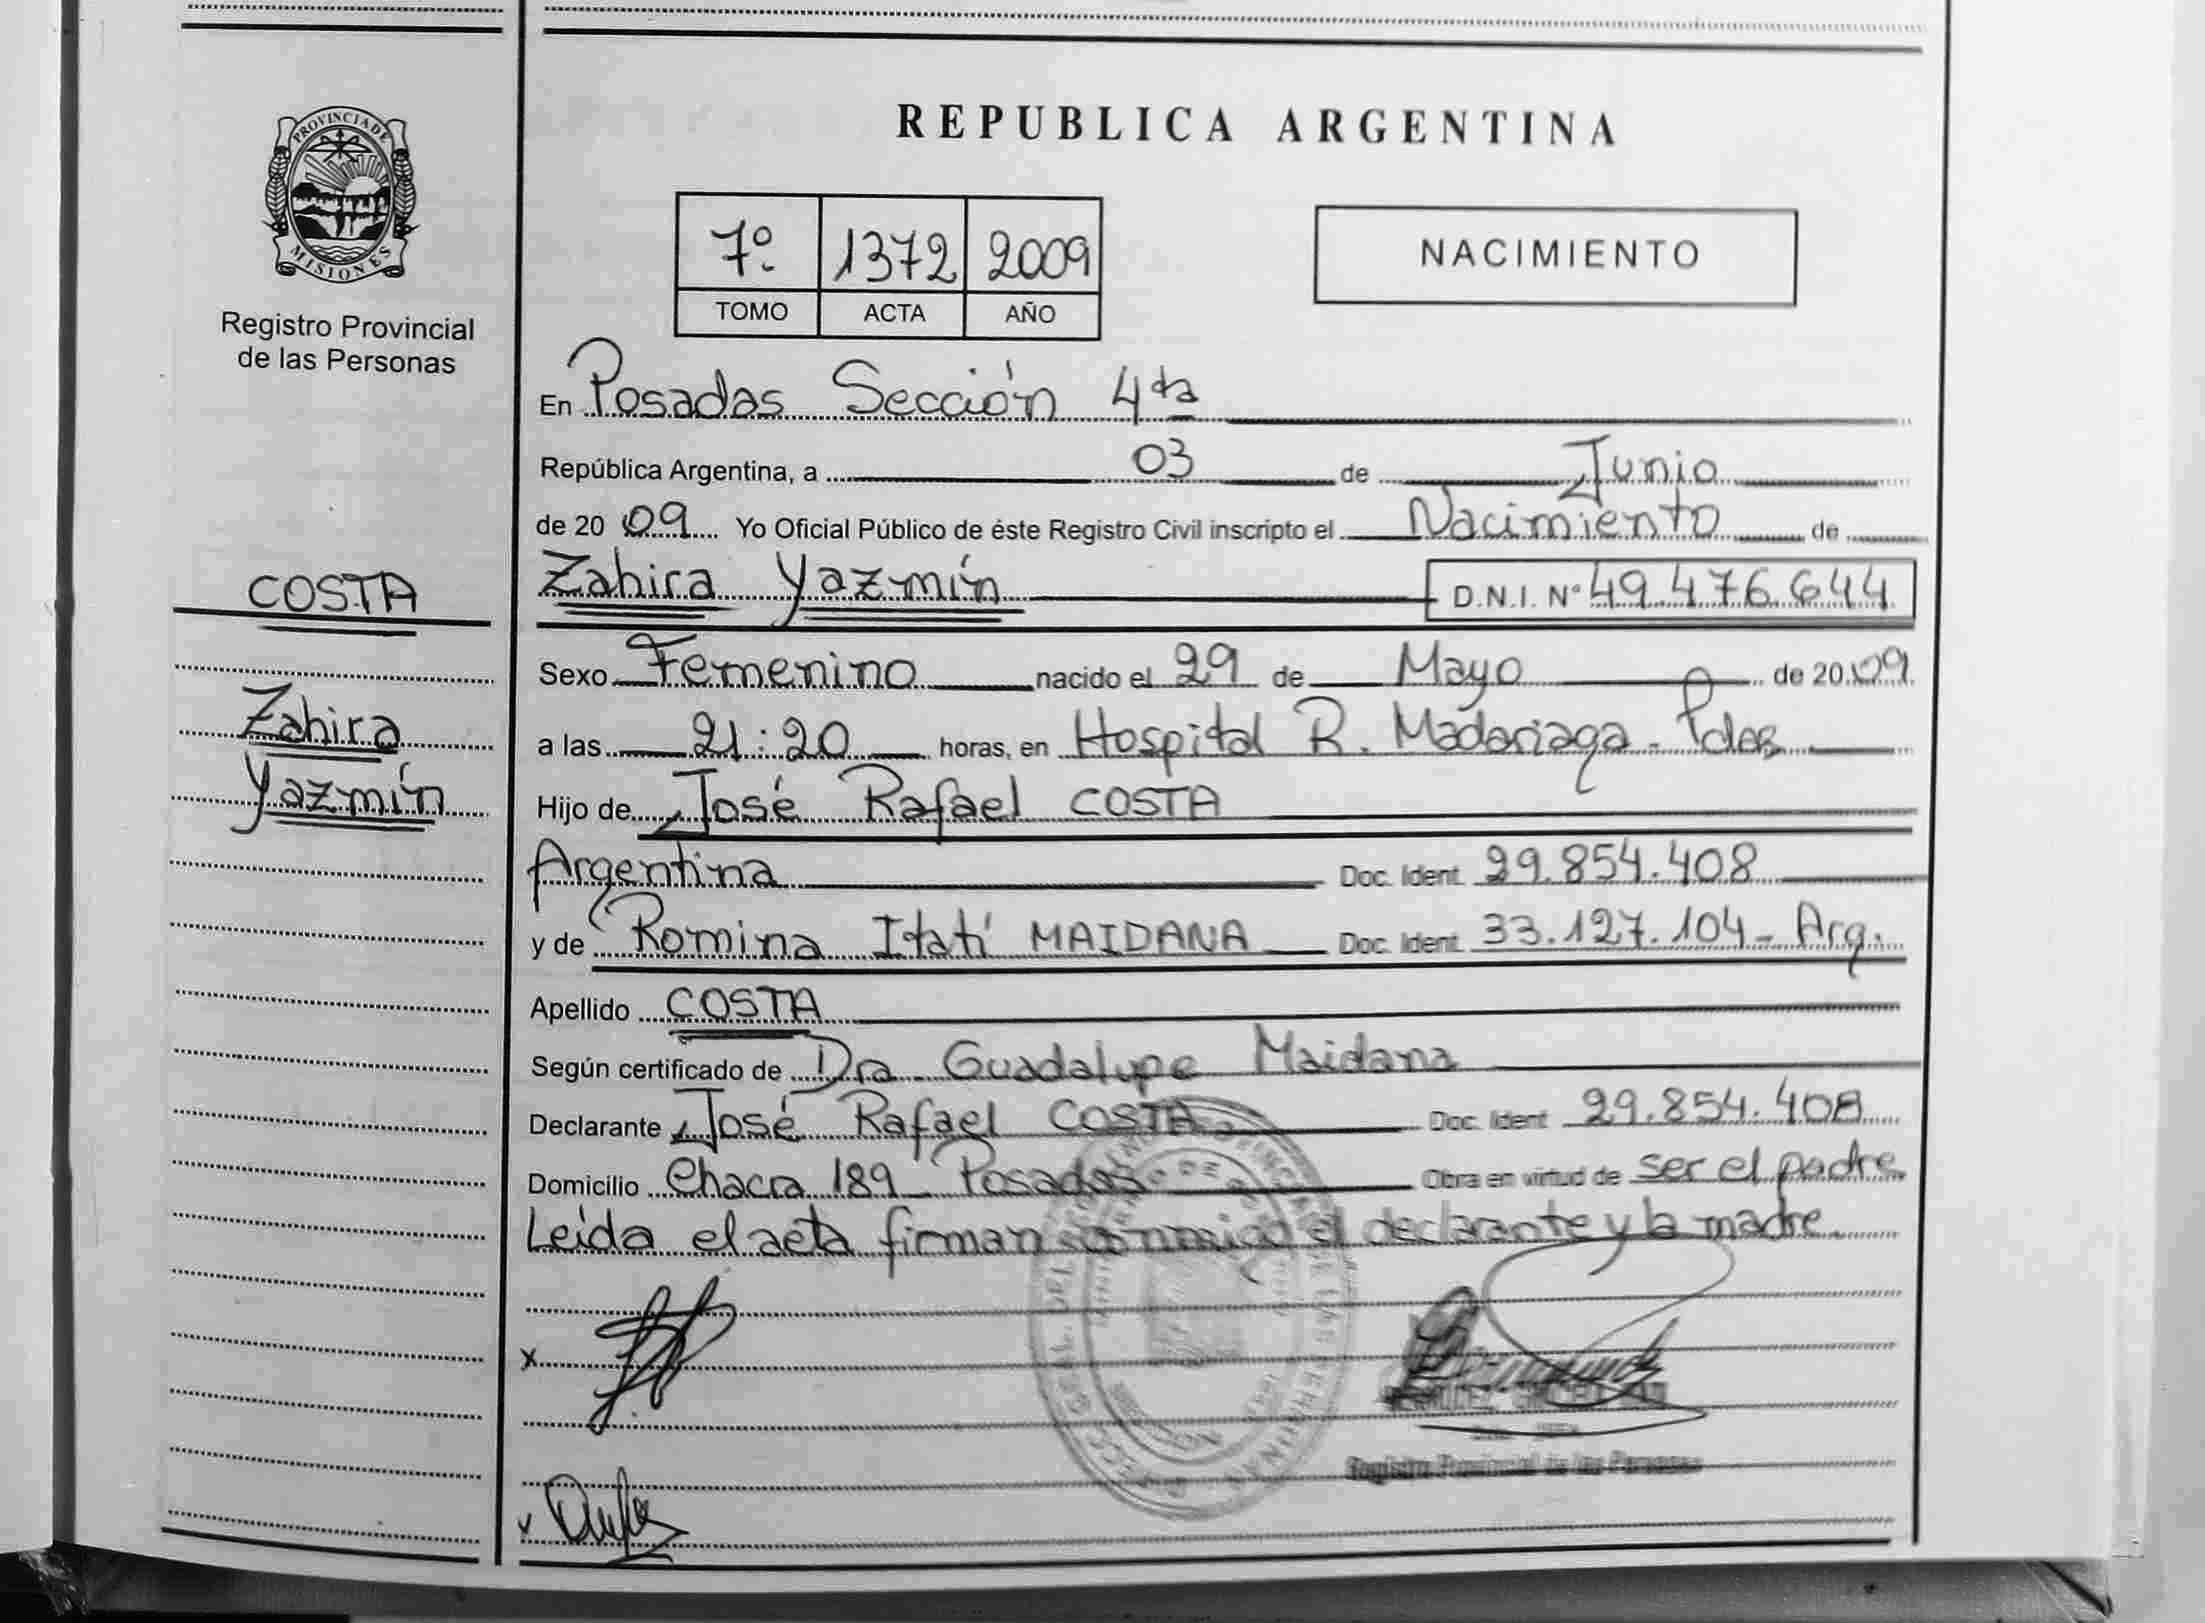 PROVINCIA DE
MISIONES
Registro Provincial
de las Personas
COSTA
Zahira
Yazmín
REPUBLICA ARGENTINA
7º 1372 2009
TOMO ACTA AÑO
NACIMIENTO
En Posadas Sección 4ta
República Argentina, a 03 de Junio
de 20 09 Yo Oficial Público de éste Registro Civil inscripto el Nacimiento de
Zahira Yazmín D.N.I. Nº 49.476.644
Sexo Femenino nacido el 29 de Mayo de 20 09
a las 21:20 horas, en Hospital R. Madariaga - Pdas
Hijo de José Rafael COSTA
Argentina Doc. Ident. 29.854.408
y de Romina Itatí MAIDANA Doc. Ident. 33.127.104 - Arg.
Apellido COSTA
Según certificado de Dra. Guadalupe Maidana
Declarante José Rafael COSTA Doc. Ident 29.854.408
Domicilio Chacra 189 - Posadas Obra en virtud de ser el padre
Leída el acta firman conmigo el declarante y la madre.
x
Registro Provincial de las Personas